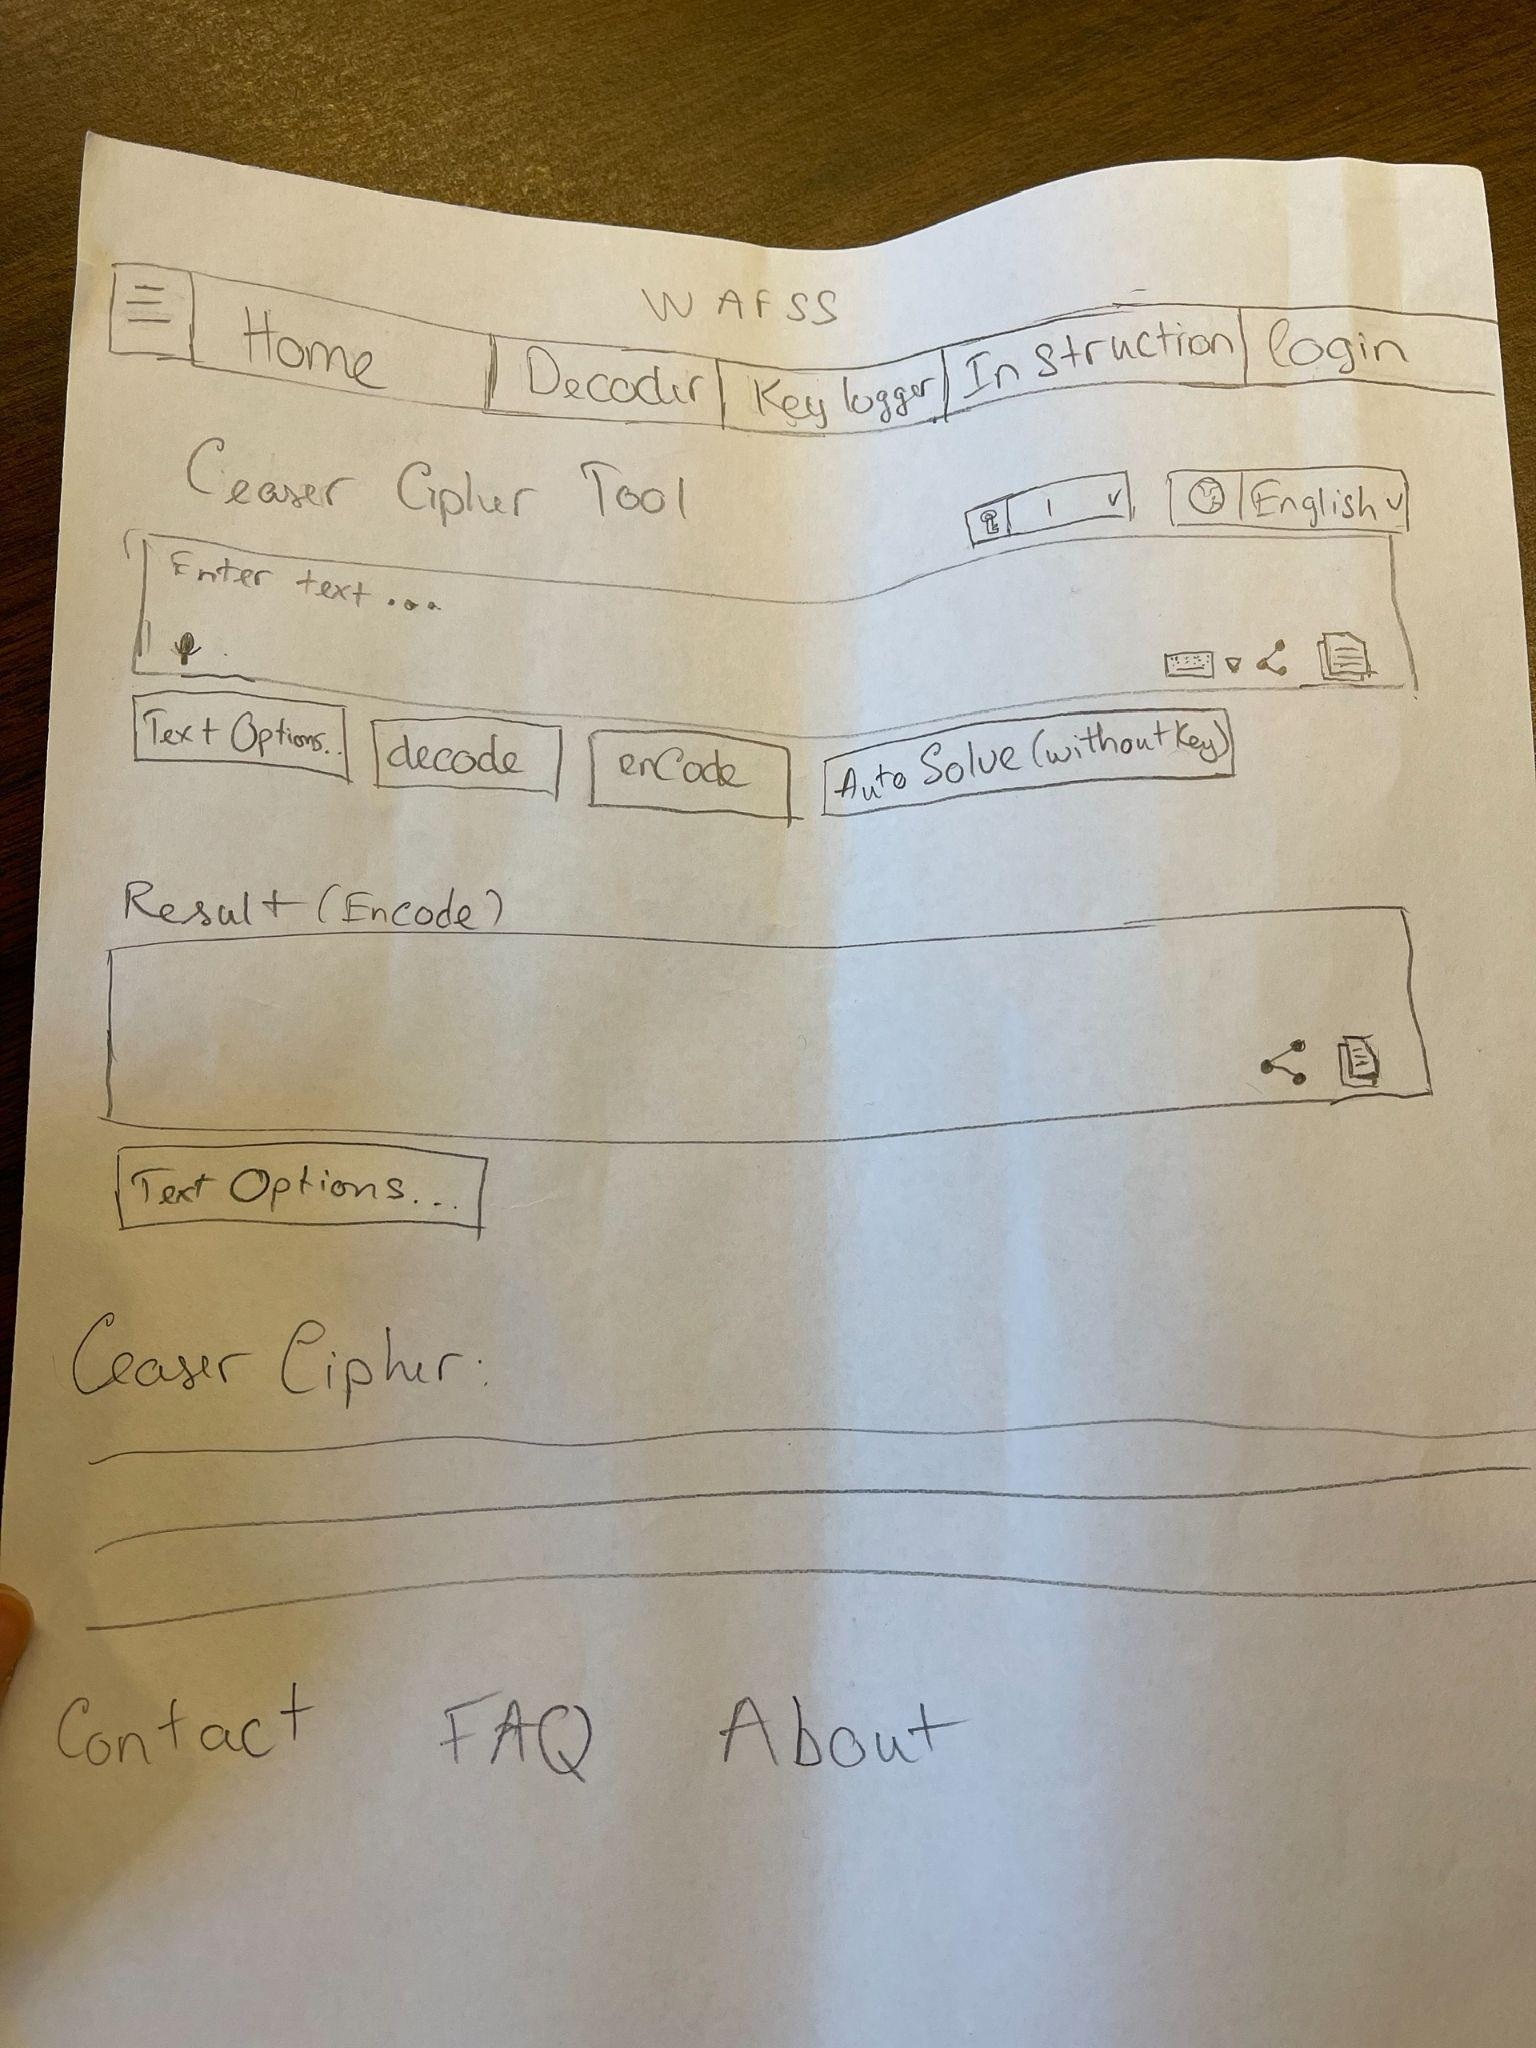 WAFSS
Home Decoder Key logger Instruction login
Ceaser Cipher Tool
1 English
Enter text...
Text Options.. decode enCode Auto Solve (without Key)
Result (Encode)
Text Options...
Ceaser Cipher:
Contact FAQ About